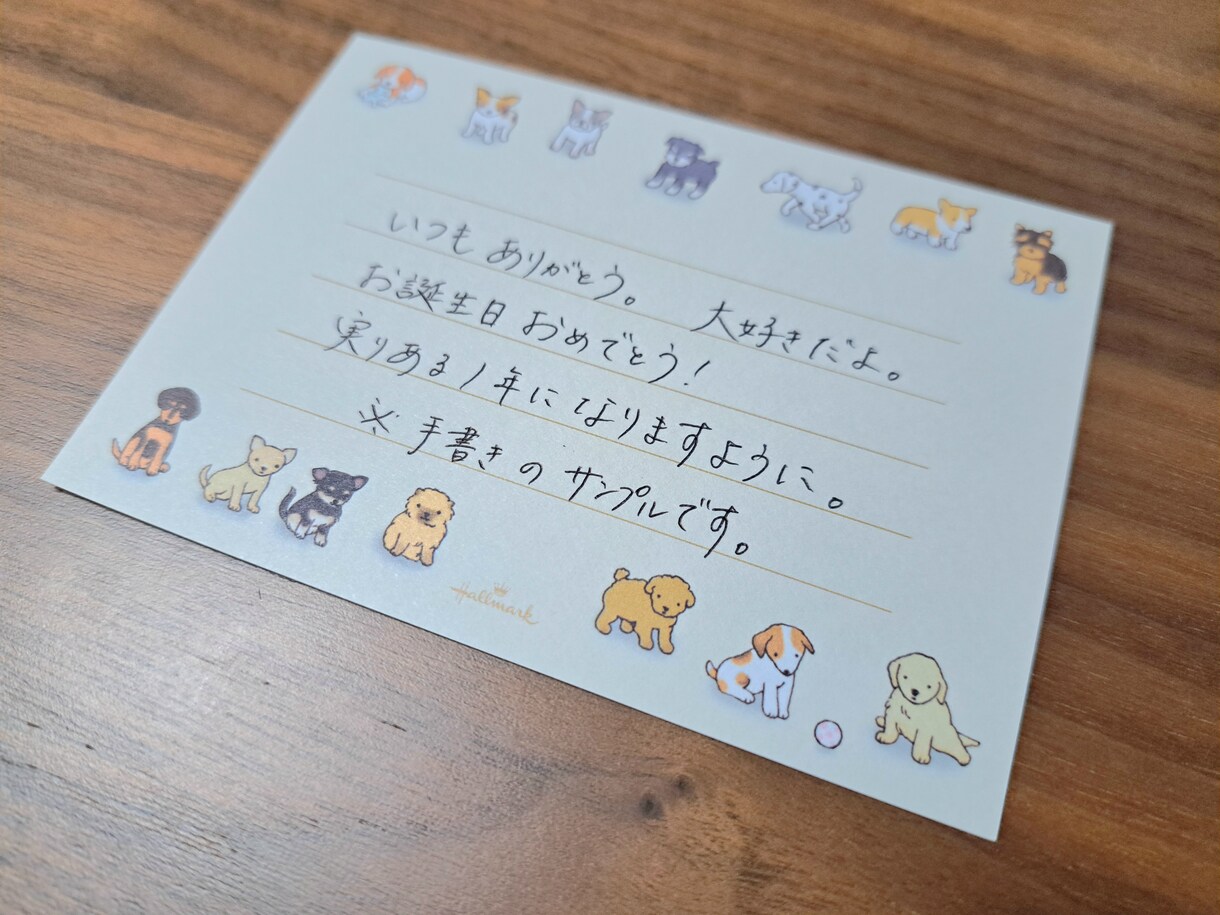 いつも ありがとう。 大好きだよ。
お誕生日 おめでとう!
実りある1年になりますように。
※ 手書きの サンプルです。
Hallmark